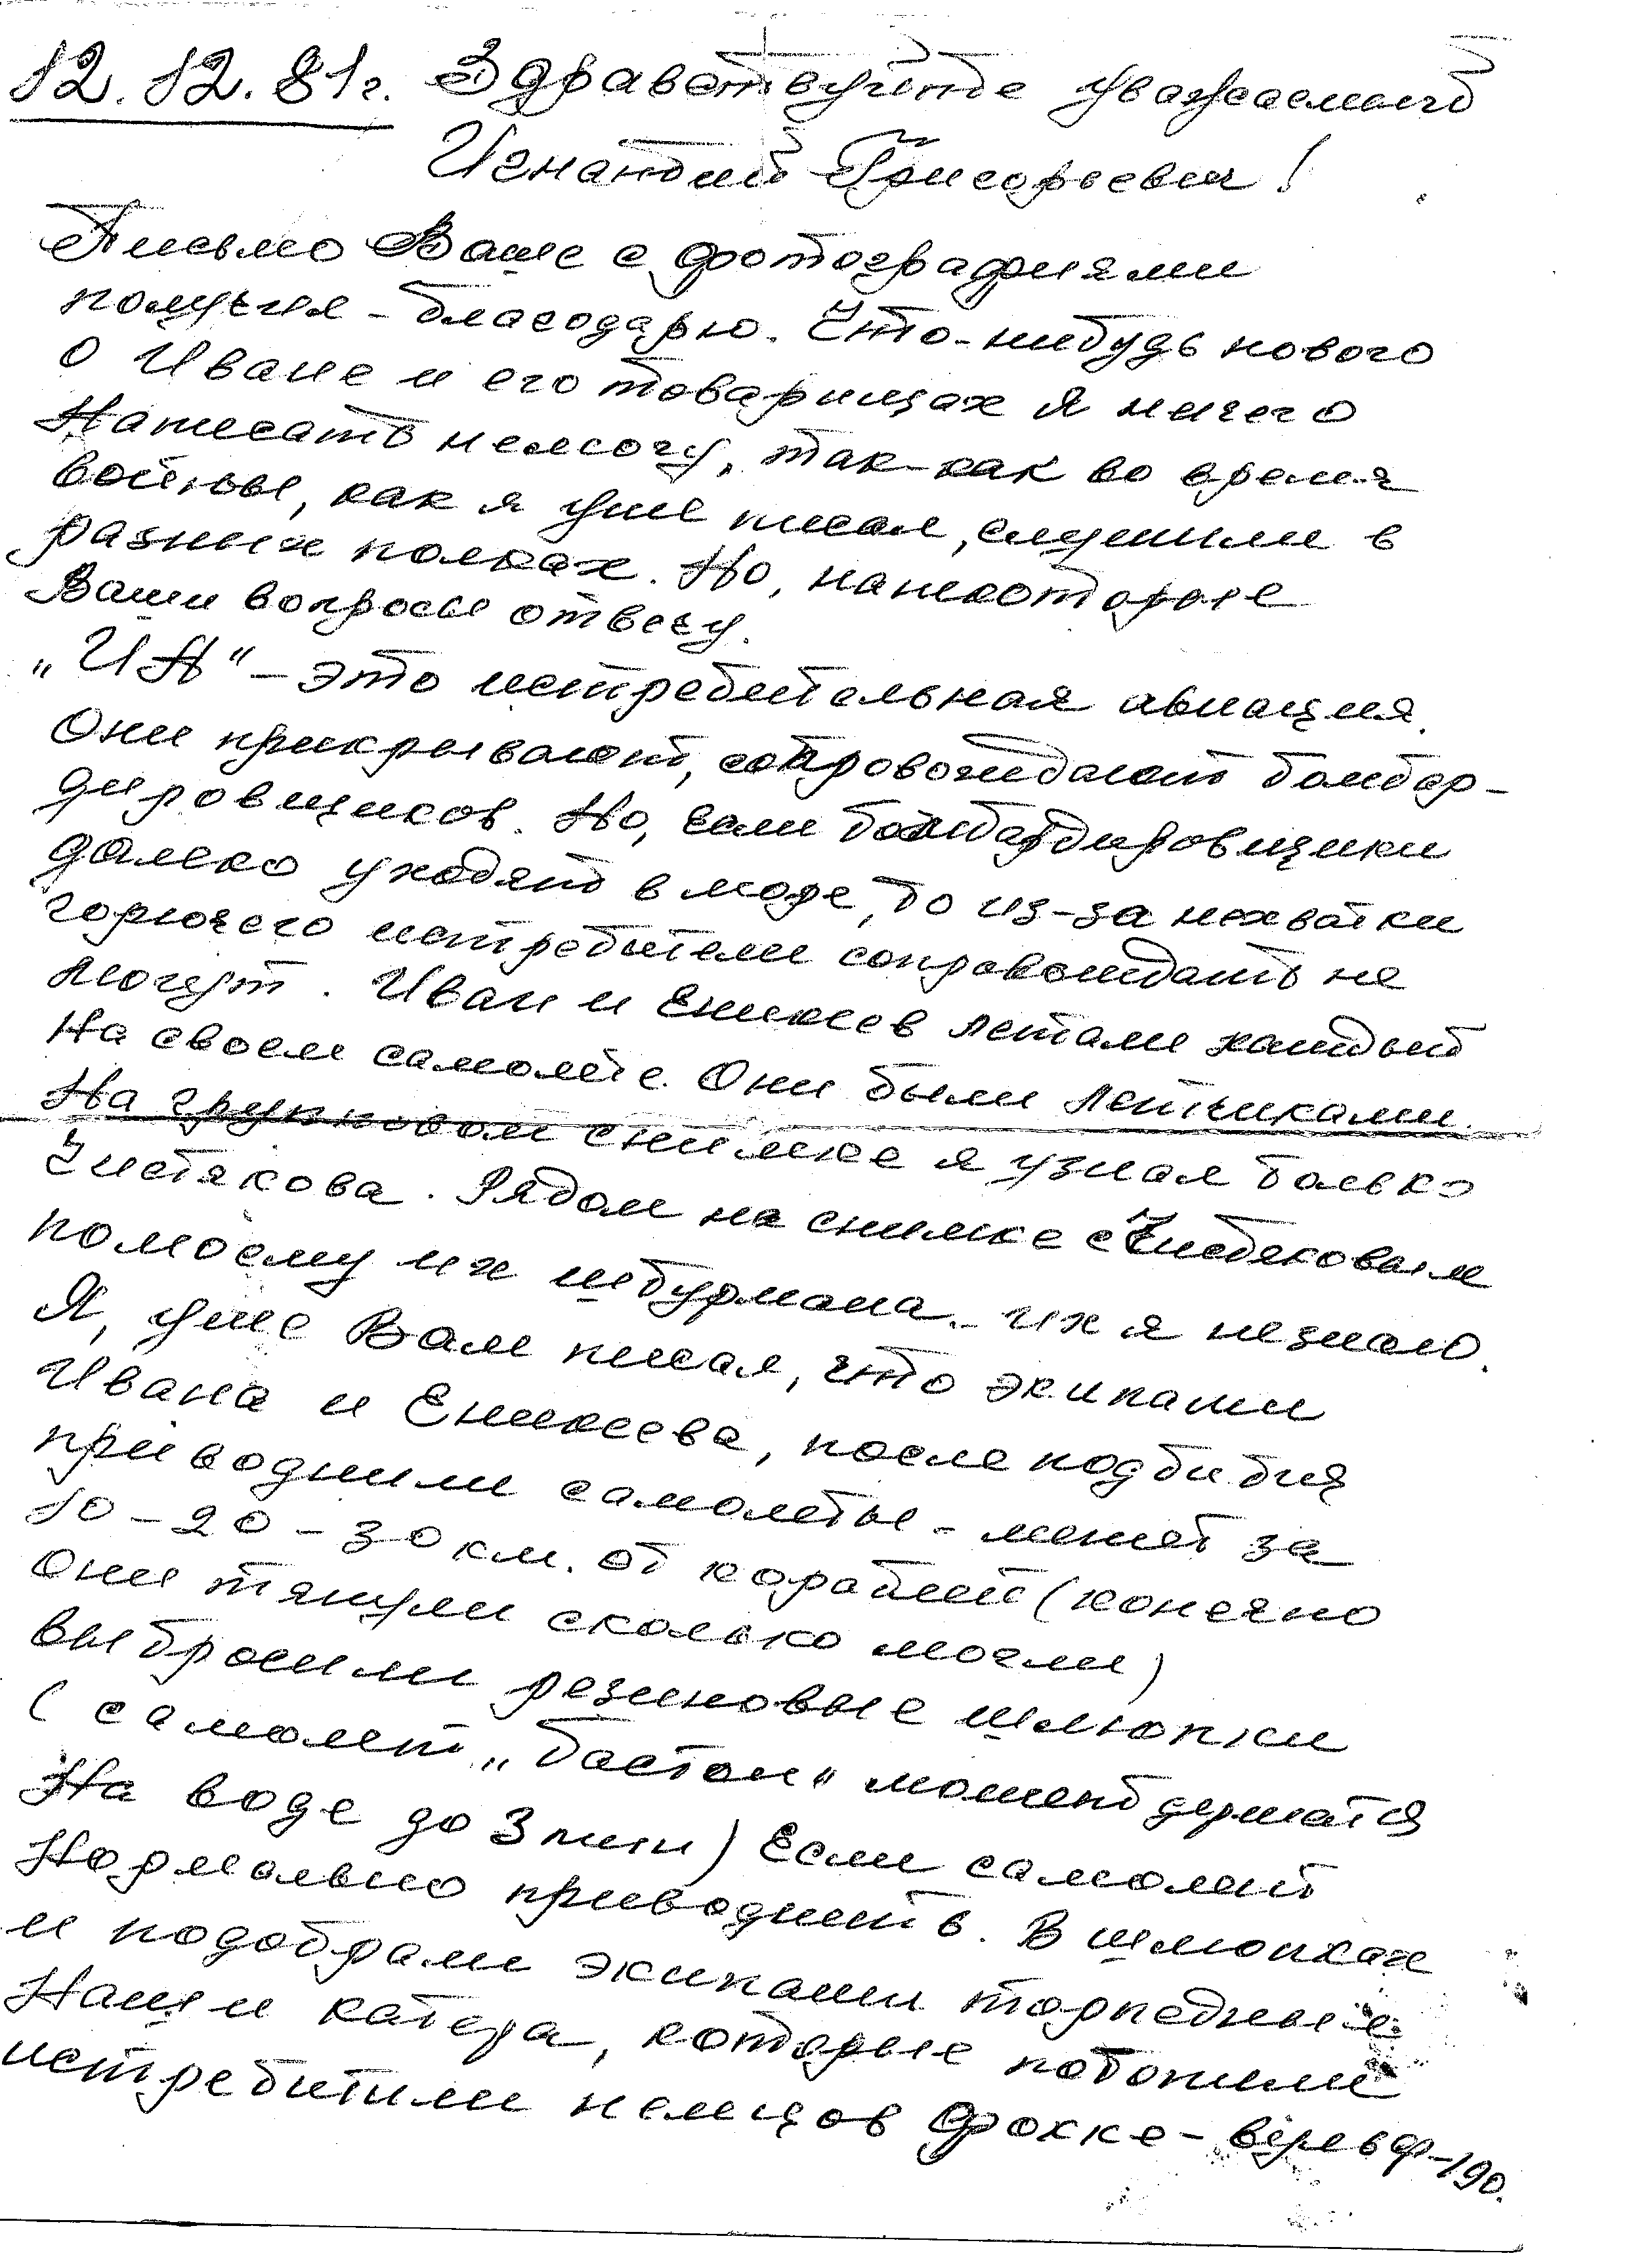 12.12.81г. Здравствуйте уважаемый
Игнатий Григорьевич!
Письмо Ваше с фотографиями
получил - благодарю. Что-нибудь нового
о Иване и его товарищах я ничего
написать немогу, так-как во время
войны, как я уже писал, служили в
разных полках. Но, нанекоторые
Ваши вопросы отвечу.
„ИА“ - это истребительная авиация.
Они прикрывают, сопровождают бомбар-
дировщиков. Но, если бомбардировщики
далеко уходят в море, то из-за нехватки
горючего истребители сопровождать не
могут. Иван и Еникеев летали каждый
на своем самолёте. Они были летчиками.
На групповом снимке я узнал только
Чистякова. Рядом на снимке с Чистяковым
помоему их штурмана - их я незнаю.
Я, уже Вам писал, что экипажи
Ивана и Еникеева, после подбития
приводнили самолёты - может за
10-20-30 км. от кораблей (конечно
они тянули сколько могли)
выбросили резиновые шлюпки
(самолет „бостон“ может держатся
на воде до 3 мин) Если самолет
нормально приводнить. В шлюпках
и подобрали экипажи торпедные
наши катера, которые потопили
истребители немцов Фокке-вульф-190.